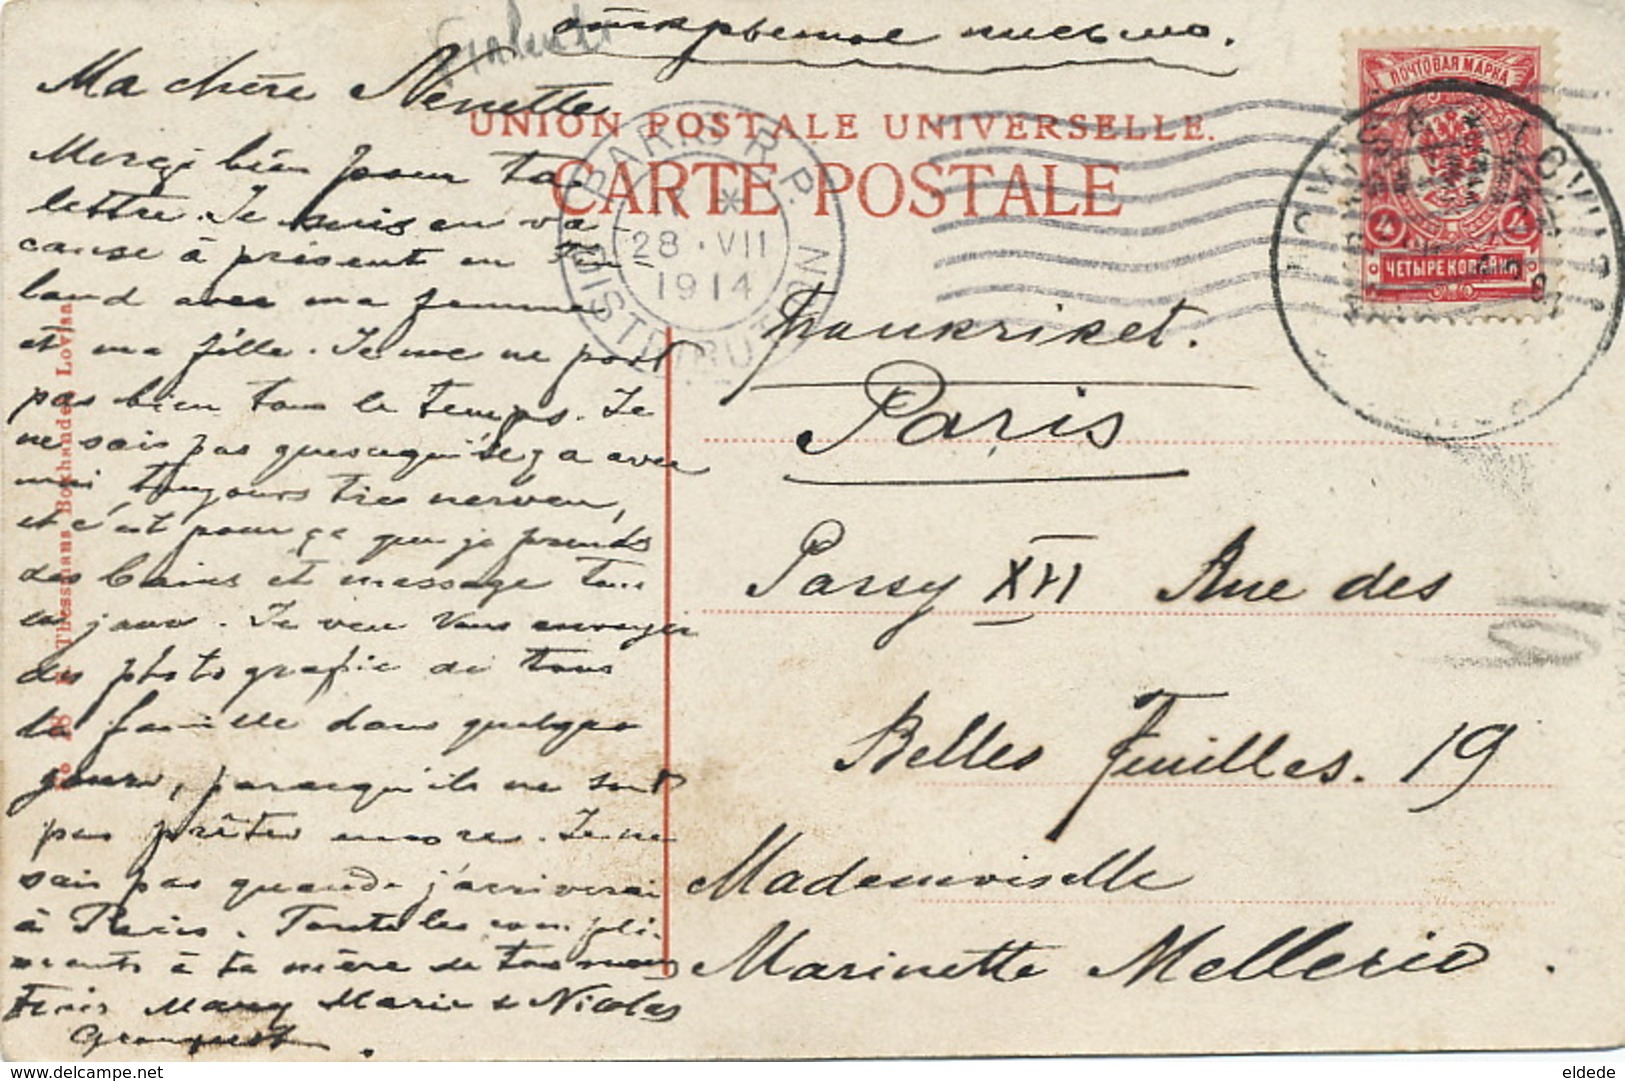 открытое письмо.
Ma chère Nenette
Merçi bien pour ta
lettre. Je suis en va-
canse à présent en Fin-
land avec ma femme
et ma fille. Je me ne port
pas bien tous le temps. Je
ne sais pas quesequ'il y a avec
moi toujours tres nerveu,
et c'est pour ça que je prends
des bains et message tous
es jour. Je veu Vous envoyer
des photografie de tous
la famille dans quelque
jours, parcequ'ils ne sont
pas prêtes encore. Je ne
sais pas quande j'arriverai
à Paris. Toute les compli-
ments à ta mère de tous nous
Marie & Nicolas
UNION POSTALE UNIVERSELLE.
CARTE POSTALE
PARIS R.P.
DISTRIBUTION
*
28 · VII
1914
ПОЧТОВАЯ МАРКА
4 4
ЧЕТЫРЕ КОПѢЙКИ
Frankriket.
Paris
Passy XVI Rue des
Belles Feuilles. 19
Mademoiselle
Marinette Mellerio.
Thessmans Bokhandel Lovisa
eldede